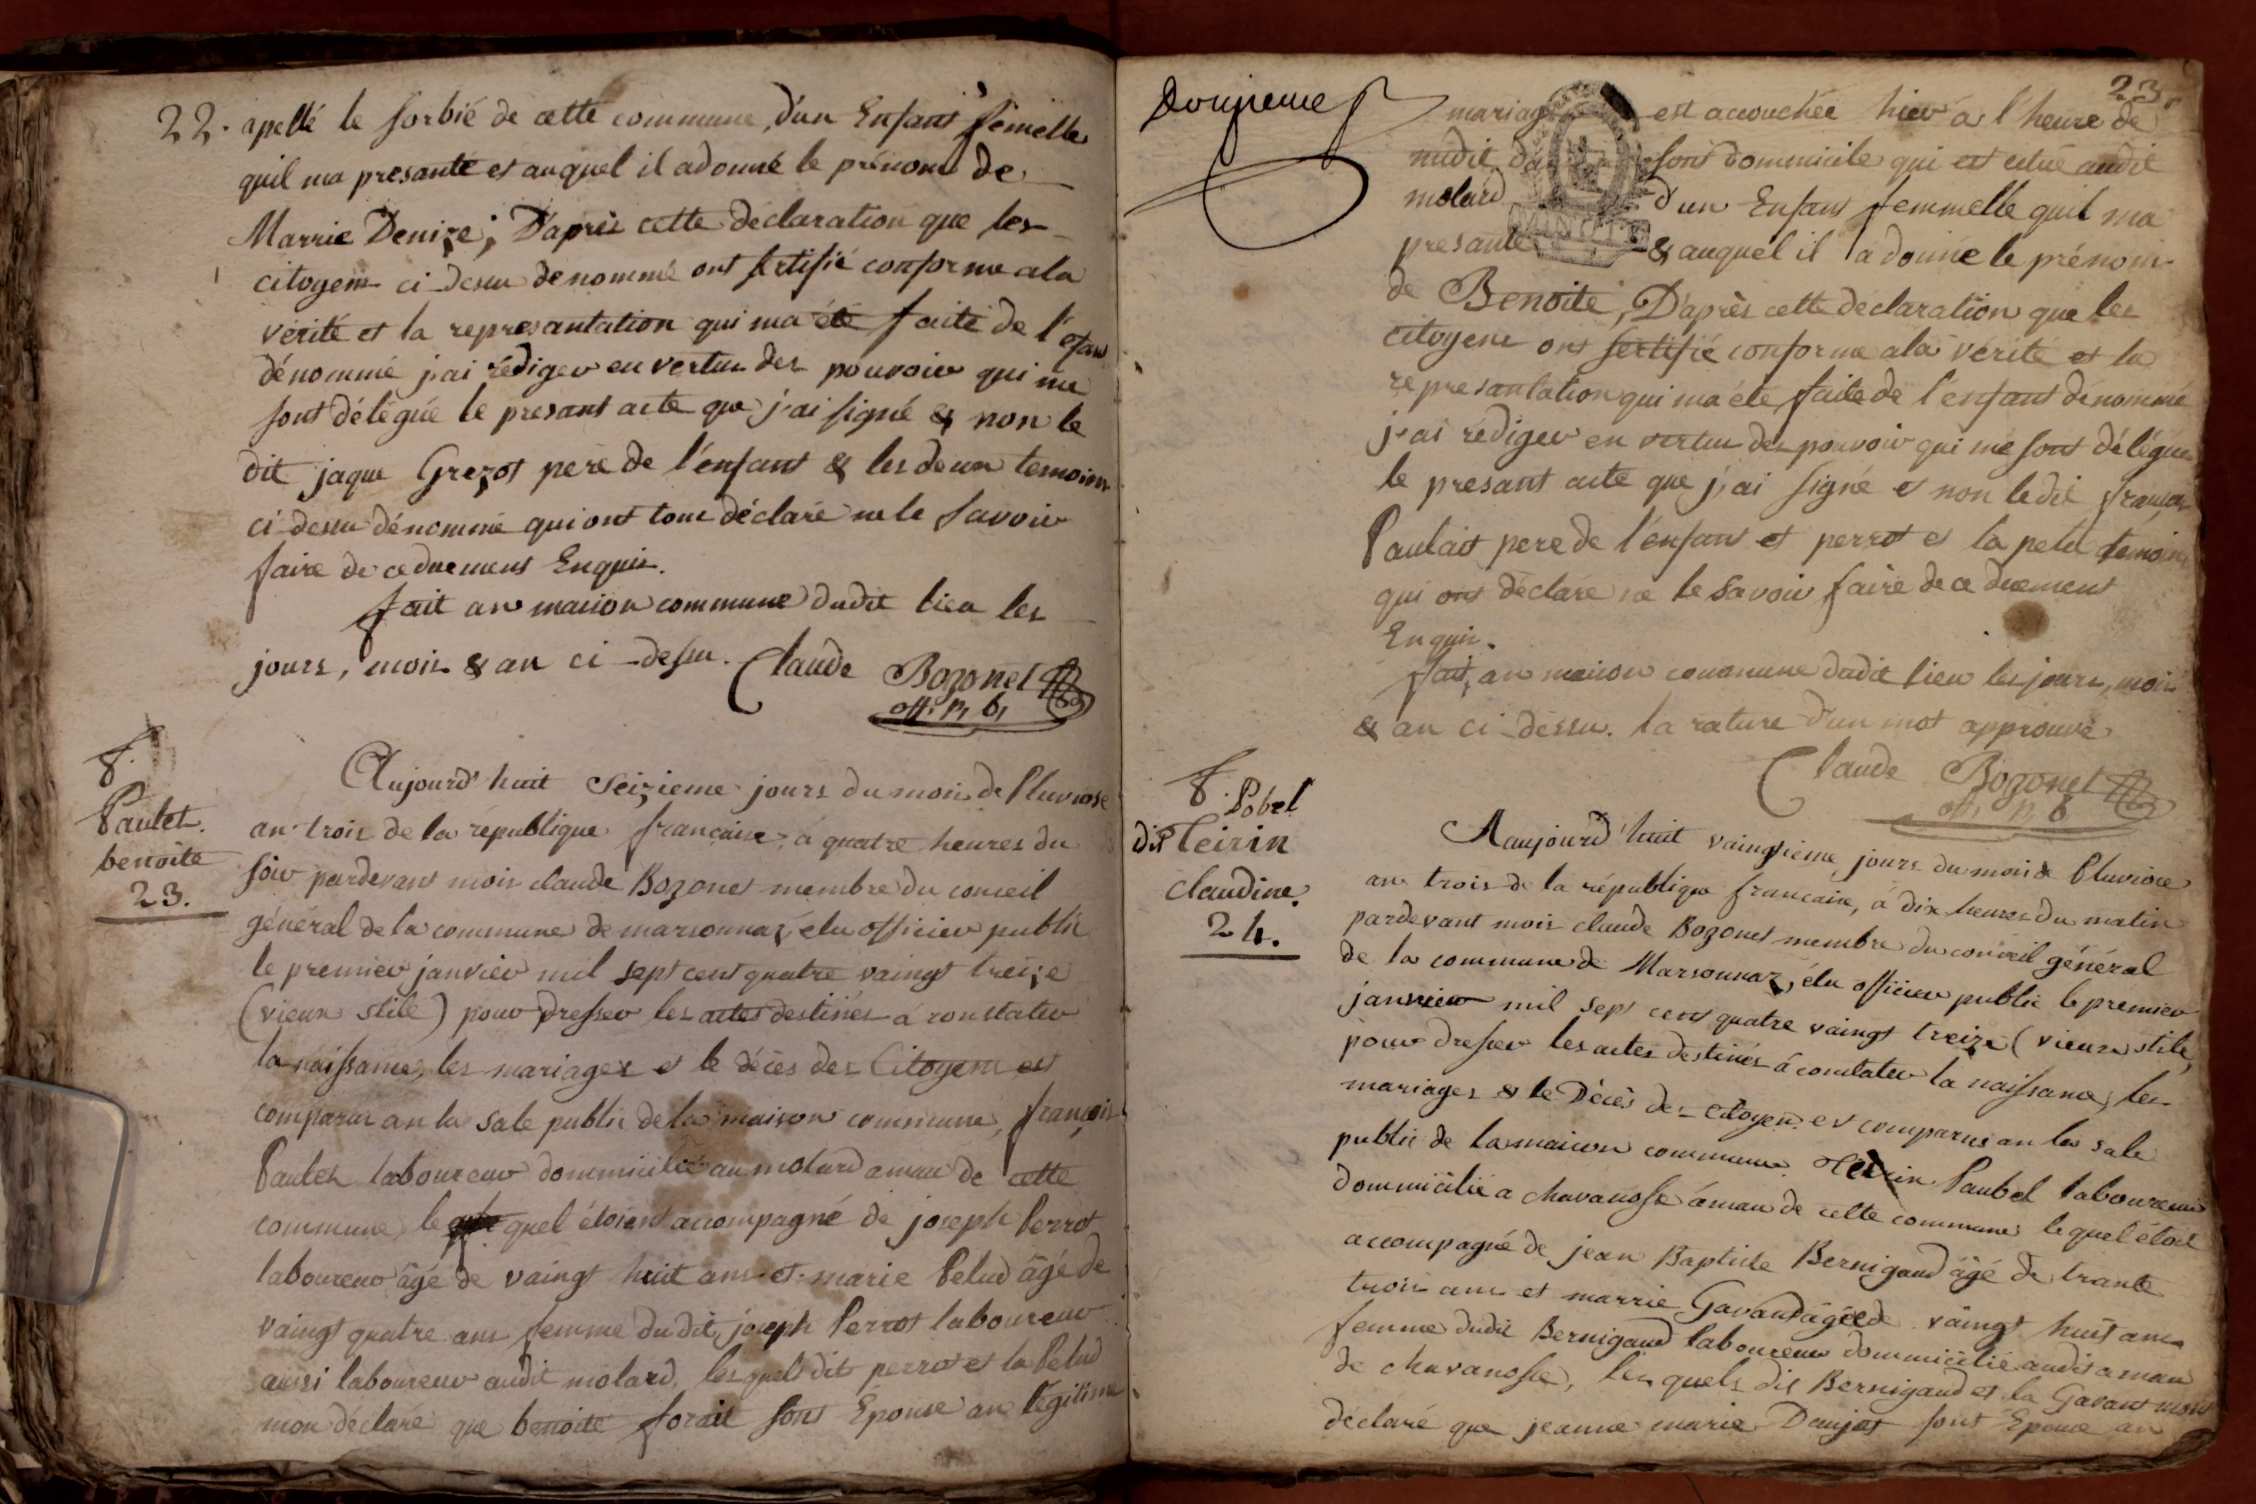 22. apellé le sorbié de cette commune, d'un Enfant femelle
quil ma presanté et auquel il a donné le prénom de
Marrie Denize; D'aprês cette declaration que les
citogens ci-dessu denommé ont sertifié conforme a la
vérité et la represantation qui ma été faite de l'efant
dénommé j'ai rédiger en vertu des pouvoir qui me
sont délégué le presant acte que j'ai signé & non le
dit jaque Grezot pere de l'enfant & les deux temoins
ci dessu dénommé qui ont tous déclaré ne le savoir
faire de ce duement Enquis.
fait an maison commune dudit lieu les
jours, mois & an ci-dessu. Claude Bozonet
off. p, b,
F.
Paulet
benoite
23.
Aujourd'huit Seizieme jours du mois de Pluviose
an trois de la république francaise, à quatre heures du
soir pardevant mois claude Bozonet membre du conseil
général de la commune de marsonnaz, élu officier public
le premier janvier mil sept cent quatre vaingt treize
(vieux stile) pour dresser les actes destinés à constater
la naissance, les mariages et le décès des Citoyens est
comparu an la sale public de la maison commune, françois
Paulet laboureur dommicilié au molard amau de cette
commune le quel étoient accompagné de joseph Perrot
laboureur âgé de vaingt huit ans et marie Pelud âgé de
vaingt quatre ans femme dudit joseph Perrot laboureur
aussi laboureur audit molard, lesquels dit perrot et la Pelud
mon déclaré que benoite forait sont Epouse an légitime
23.
Douzieme
mariage est accouchée hier a l'heure de
midit, da sont dommicile qui est citué audit
molard d'un Enfant femmelle quil ma
presanté & auquel il a donne le prénom
de Benoite, D'aprês cette déclaration que les
citoyens ont sertifié conforme a la vérité et la
represantation qui ma été faite de l'enfant dénommé
j'ai rédiger en vertu des pouvoir qui me sont délégué
le presant acte que j'ai signé et non ledit françois
Paulait pere de l'enfant et perrot et la pelu témoins
qui ont déclaré ne le savoir faire de ce duement
Enquis.
fait, an maison commune dudit lieu les jours, mois
& an ci-dessu. la rature d'un mot approuvé
Claude Bozonet
off. p, b
F. Pobel
dit Teirin
Claudine.
24.
Aaujourd'huit vaingtieme jours du mois de Pluviose
an trois de la république francaise, à dix heures du matin
pardevant mois claude Bozonet membre du conseil général
de la commune de Marsonnaz, élu officier public le premier
janvier mil sept cent quatre vaingt treize (vieux stile)
pour dresser les actes destinés à constater la naissance, les
mariages & le Décès des citoyens est comparus an la sale
public de la maison commune Teirin Paubel laboureur
dommicilié a chavanosse amau de cette commune lequel étoit
accompagné de jean Baptiste Bernigaud âgé de trante
trois ans et marrie Gavand âgée de vaingt huit ans
femme dudit Bernigaud laboureur dommicilié audit amau
de chavanosse, lesquels dit Bernigaud et la Gavant mont
déclaré que jeanne marie Danjat sont Epouse an